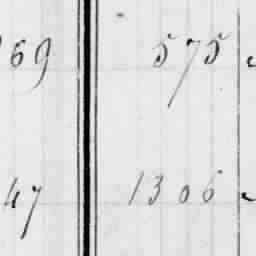 69 575
47 1306